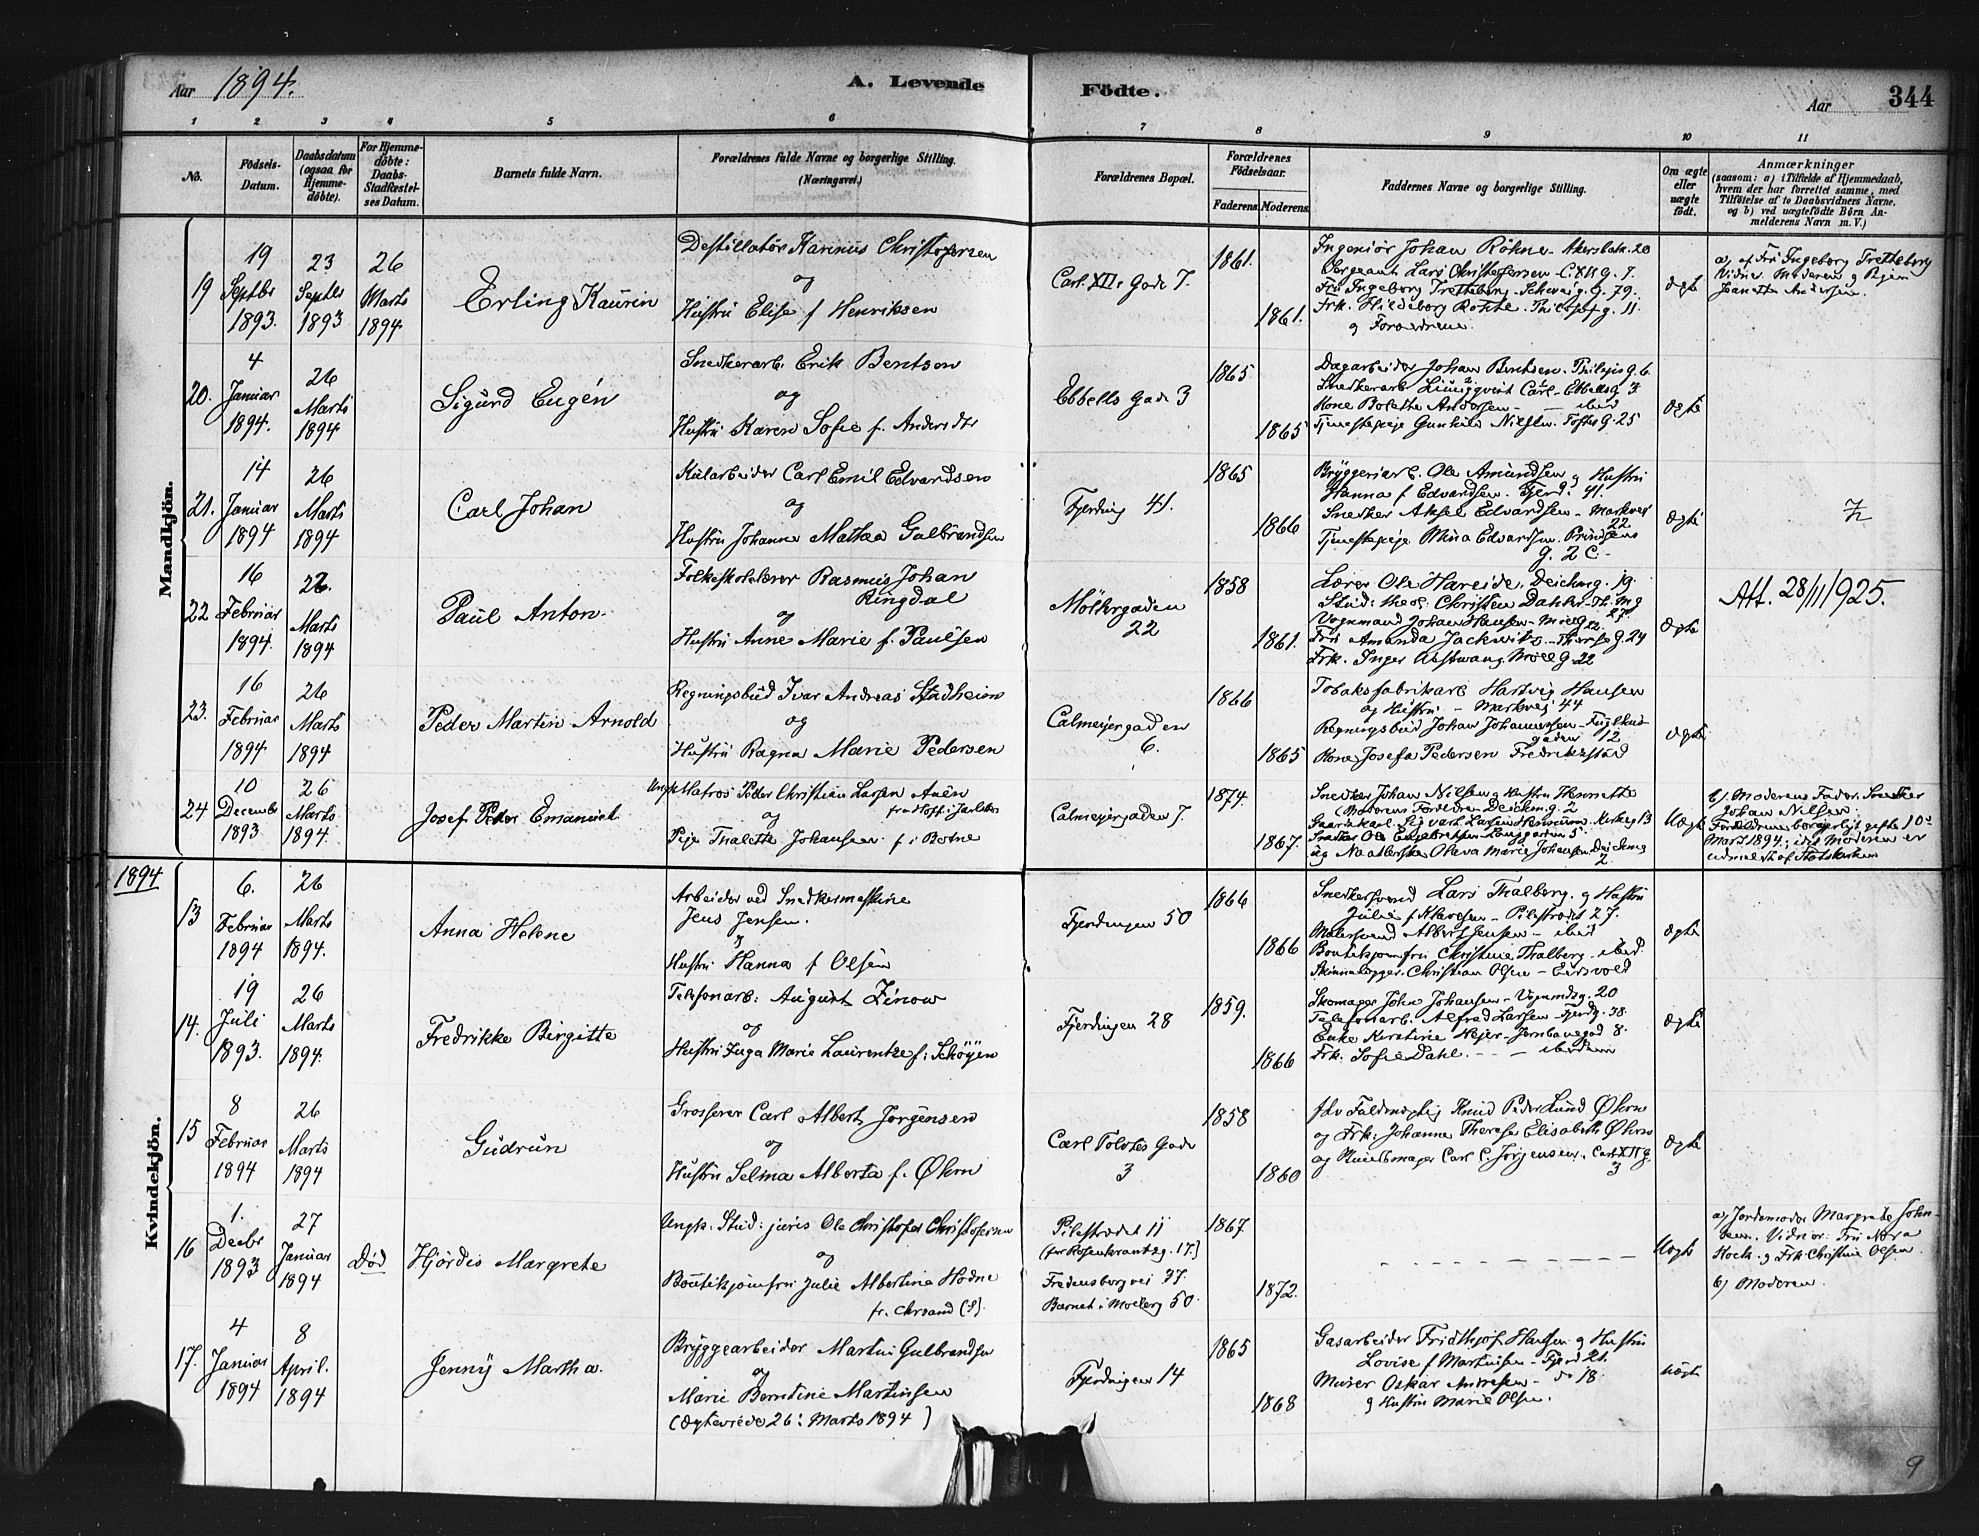 Aar 1894. A. Levende Födte. Aar 344
1 2 3 4 5 6 7 8 9 10 11
No.
Födsels-Datum.
Daabsdatum (ogsaa for Hjemme-döbte).
For Hjemme-döbte: Daabs-Stadfæstel-ses Datum.
Barnets fulde Navn.
Forældrenes fulde Navne og borgerlige Stilling. (Næringsvei.)
Forældrenes Bopæl.
Forældrenes Födselsaar.
Faderens. Moderens.
Faddernes Navne og borgerlige Stilling.
Om ægte eller uægte födt.
Anmærkninger
(saasom: a) i Tilfælde af Hjemmedaab, hvem der har forrettet samme, med Tilföielse af to Daabsvidners Navne. og b) ved uægtefödte Börn An-melderens Navn m.V.)
Mandkjön.
19
19 Septbr 1893.
23 Septbr 1893
26 Marts 1894
Erling Kaurin
Destillatör Karinus Christofersen
og
Hustru Elise f Henriksen
Carl XIIs Gade 7.
1861.
1861.
Ingeniör Johan Röhne. Akersbak. 20
Sergeant Lars Christofersen - C. XII g. 7.
Fru Ingeborg Tretteberg. Schweig. G. 79.
g Forældrene.
ægte
a) af Fru Ingeborg Tretteberg
Vidner: Moderen g Pigen
Jeanette Andersen.
20.
4 Januar 1894.
26 Marts 1894
Sigurd Eugén
Snedkerarb. Erik Bentsen
og
Hustru Karen Sofie f. Andersdtr
Ebbells Gade 3
1865
1865
Dagarbeider Johan Bentsen.
Kone Bolette Andersen - - ibid
Tjenestepige Gunhild Nilsen. Toftes G. 25
ægte
21.
14 Januar 1894
26 Marts 1894
Carl Johan
Kularbeider Carl Emil Edvardsen
og
Hustru Johanne Mathea Gulbrandsen
Fjerding 41.
1865
1866
Bryggeriarb. Ole Amundsen g Hustru
Hanna f Edvardsen. Fjerdg. 41.
Snedker Aksel Edvardsen - Markvei 22
Tjenestepige Mina Edvardsen. Prindsens
g. 2 C -
ægte
22
16 Februar 1894.
26. Marts 1894
Paul Anton.
Folkeskolelærer Rasmus Johan
Ringdal
og
Hustru Anne Marie f. Paulsen
Möllergaden
22
1858
1861.
Lærer Ole Hareide. Deichmg. 19.
Stud: theol. Christen Dahler
Vognmand Johan Hansen - Möllg 22.
Fru Amanda Jackwitz - Therese G. 24
Frk. Inger Austvang. Möll G. 22
ægte
Att. 28/11/925.
23.
16 Februar 1894
26 Marts 1894
Peder Martin Arnold
Regningsbud Ivar Andreas Stadheim
og
Hustru Ragna Marie Pedersen
Calmeyergaden
6.
1866
1865
Tobaksfabrikarb Hartvig Hansen
og Hustru - Markvei 44
Regningsbud Johan Johannessen - Fuglehau-
gaden 12
Kone Josefa Pedersen Fredrikstad
ægte
24
10 Decembr 1893.
26 Marts 1894.
Josef Peder Emanuel
Ungk Matros Peder Christian Larsen Auen
fra Hoff i Jarlsber
og
Pige Thalette Johansen f. i Botne
Calmeyergaden 7.
1874.
1867.
Snedker Johan Nilsen g Hustru Henriette
(Moderens Forældre) Deichm. g. 2
Snedker Ole Engebretsen - Langgaden 5
og Naatlerske Oleva Marie Johansen. Deichmg 2
Uægte
b) Moderens Fader Snedker
Johan Nilsen.
Forældrene borgerligt gifte 10de
Marts 1894, idet Moderen er
udmeldt af Statskirken
1894
Kvindekjön.
13
6. Februar 1894
26 Marts 1894.
Anna Helene
Arbeider ved Snedkermaskine
Jens Jensen.
g
Hustru Hanna f Olsen
Fjerdingen 50
1866
1866
Snedkersvend Lars Thalberg. g Hustru
Julie f Klavesen - Pilestrædet 27.
Malersvend Albert Jensen - ibid
Boutikjomfru Christine Thalberg. ibid.
Skindlægger. Christian Olsen - Eidsvold
ægte
14.
19 Juli 1893.
26 Marts 1894.
Fredrikke Birgitte
Telefonarb: August Zinow
og
Hustru Inga Marie Laurentze f. Schöyen
Fjerdingen 28
1859.
1866
Skomager John Johansen - Vognmdsg. 20
Telefonarb. Alfred Larsen - Fjerdg. 38.
Enke Kirstine Hejer - Jernbanegad 8.
Frk. Sofie Dahl. - - - ibidem
ægte
15
8 Februar 1894
26 Marts 1894
Gudrun
Grosserer Carl Albert Jørgensen
og
Hustru Selma Alberta f. Øhrn
Carl Tolvtes Gade
3
1858
1860
fhv Fuldmægtig Knud Peder Lund Øhrn
og Frk: Johanna Therese Elisabeth Øhrn
og Buntmager Carl C. Jørgensen. Carl XII g. 3
ægte
16
1. Decbr 1893
27 Januar 1894
Død
Hjördis Margrete
Ungk: Stud: juris Ole Christofer Christofersen
og
Boutikjomfru Julie Albertine Hodne
fr. Chrsand (S).
Pilestrædet 11
(før Rosenkrantzg. 17.)
Fredensborgvei 37.
Barnet i Mollerg 50.
1867.
1872.
Uægte
a) Jordemoder Margrete John-
sen. Vidner: Fru Nora
Hoch g Frk Christine Olsen.
b) Moderen.
17.
4 Januar 1894
8 April. 1894
Jenny Martha.
Bryggearbeider Martin Gulbrandsen
og
Marie Berntine Martinsen
(Ægteviede 26: Marts 1894)
Fjerdingen 14
1865
1868
Gasarbeider Fridthjof Hansen g Hustru
Lovise f Martinsen - Fjerd 21.
Murer Oskar Andresen - do 18.
g Hustru Marie Olsen.
uægte
9